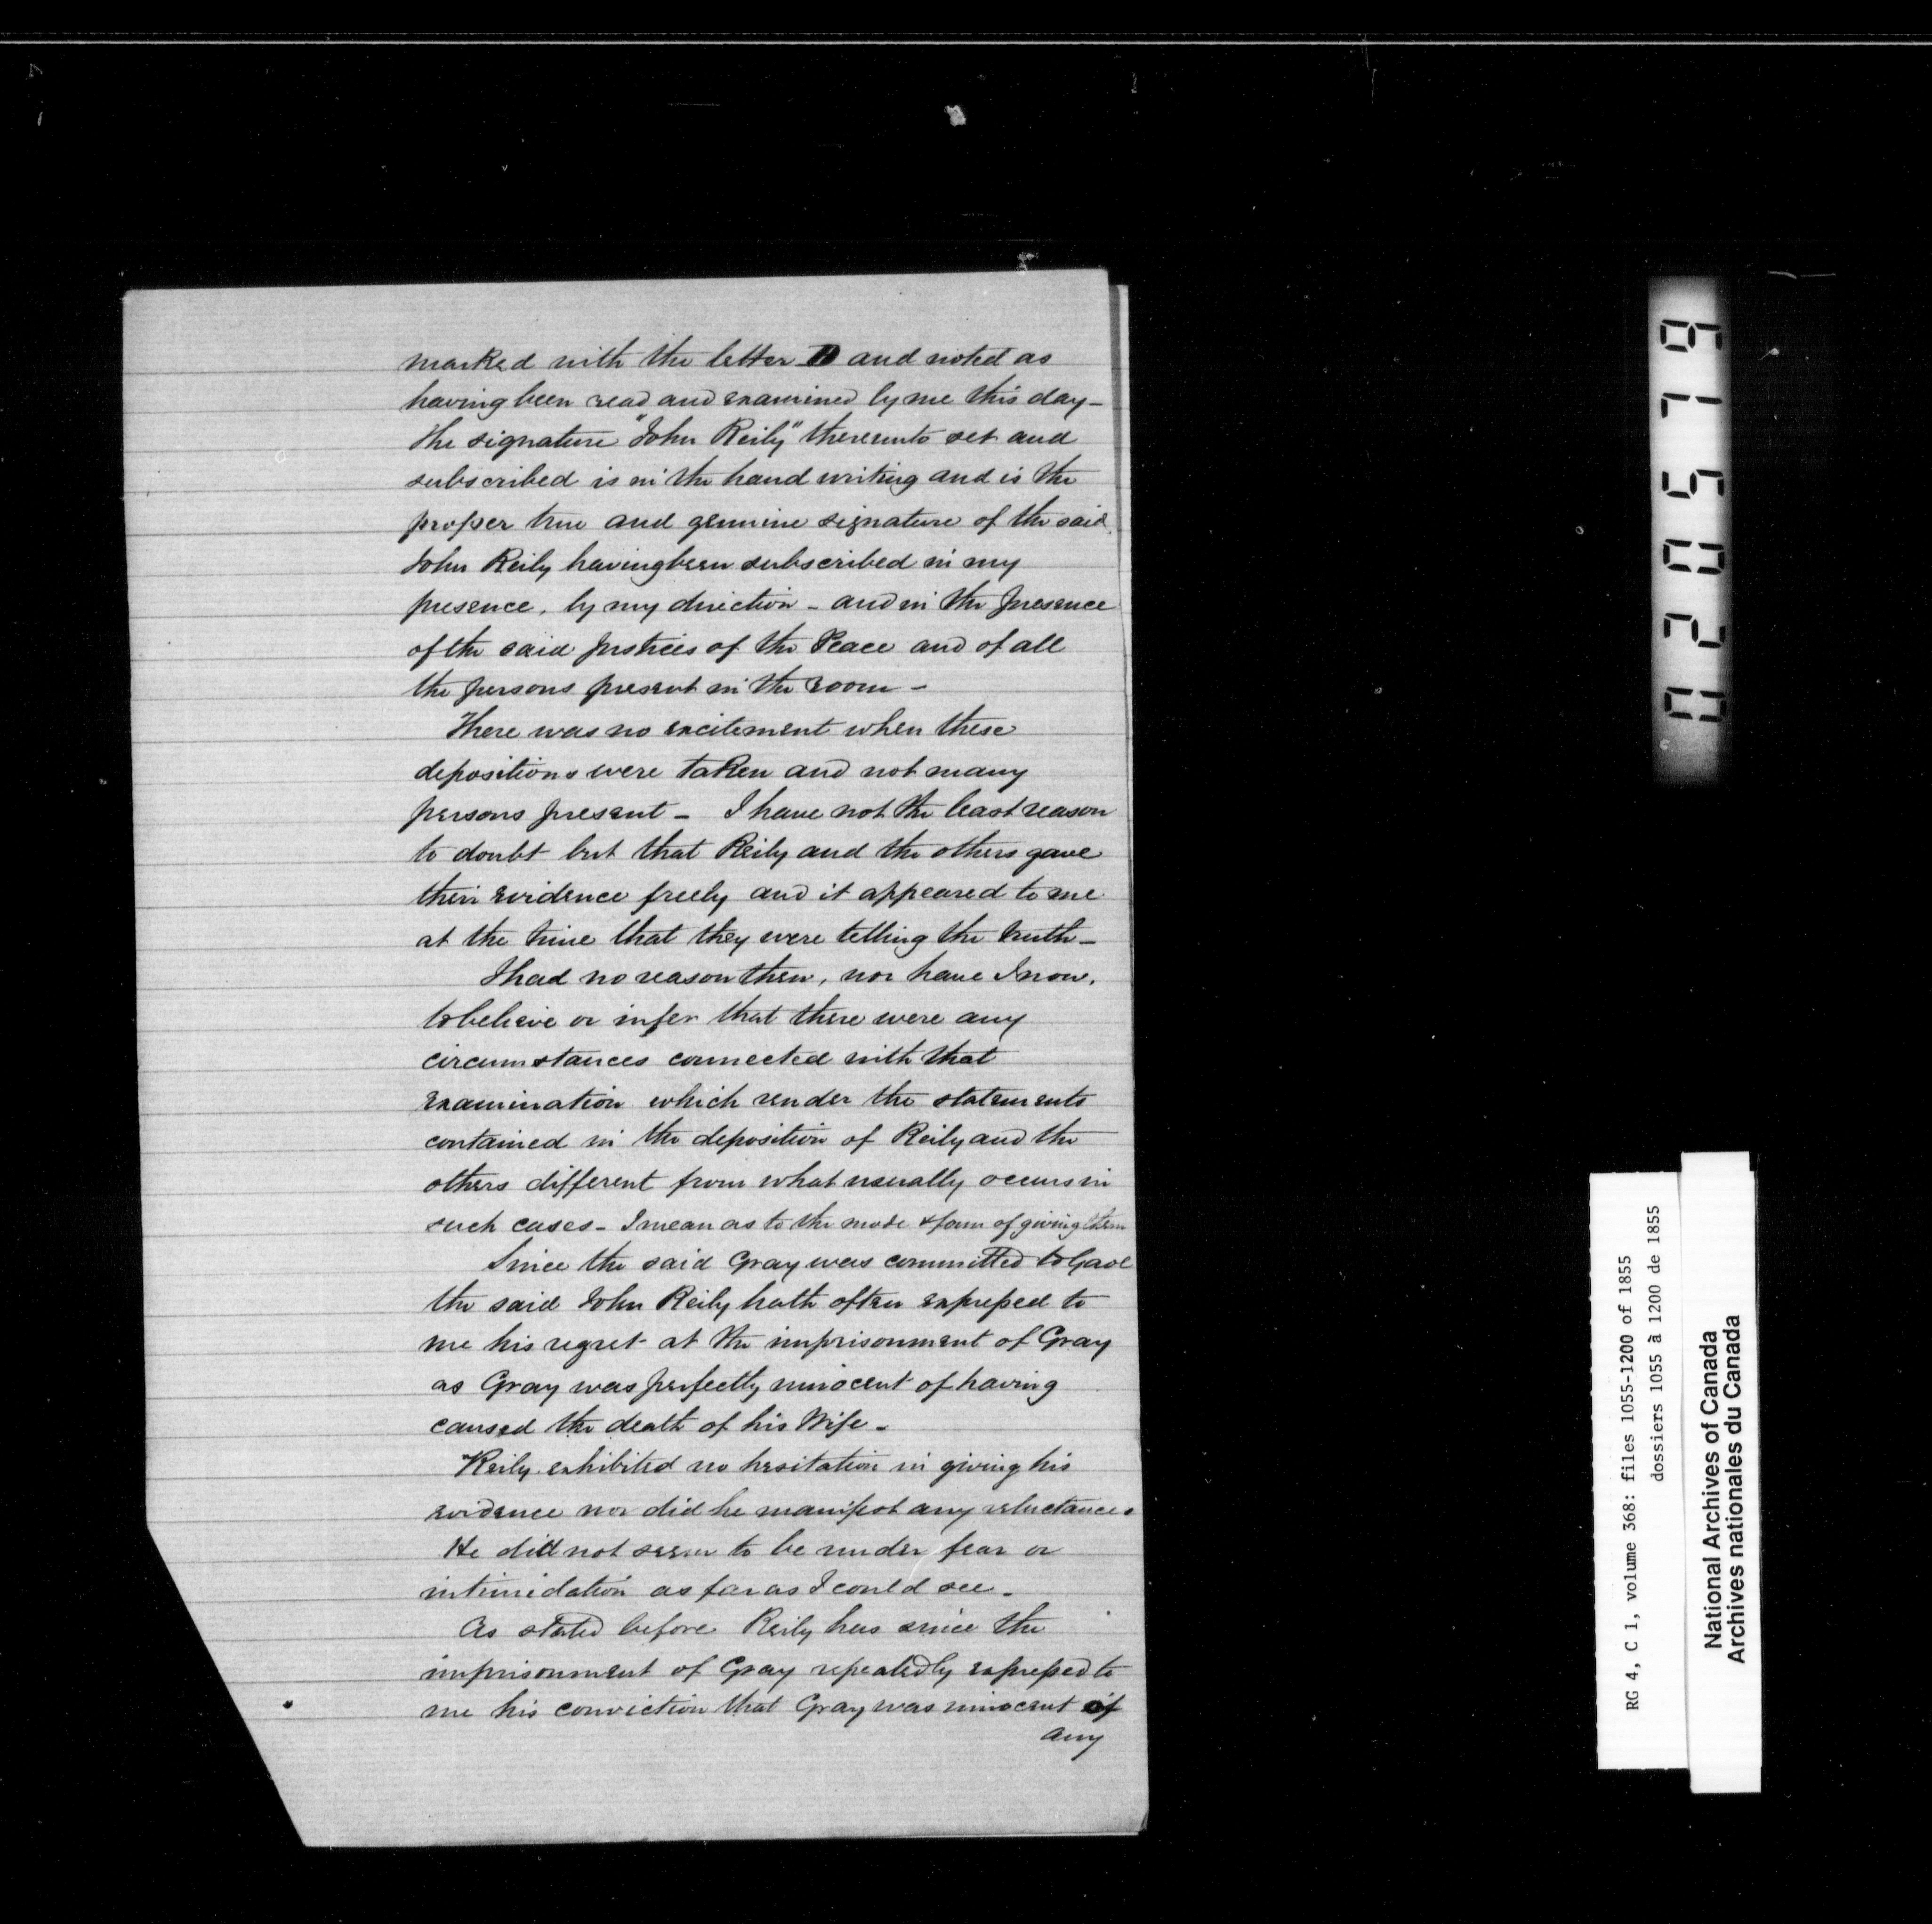 marked with the letter D and noted as
having been read and examined by me this day -
the signature "John Reily" thereunto set and
subscribed is in the hand writing and is the
proper true and genuine signature of the said
John Reily having been subscribed in my
presence, by my direction - and in the presence
of the said Justices of the Peace and of all
the persons present in the room -
There was no excitement when these
depositions were taken and not many
persons present - I have not the least reason
to doubt but that Reily and the others gave
their evidence freely and it appeared to me
at the time that they were telling the truth -
I had no reason then, nor have I now,
to believe or infer that there were any
circumstances connected with that
examination which render the statements
contained in the deposition of Reily and the
others different from what usually occurs in
such cases - I mean as to the mode & form of giving them
Since the said Gray was committed to Gaol
the said John Reily hath often expressed to
me his regret at the imprisonment of Gray
as Gray was perfectly innocent of having
caused the death of his Wife -
Reily exhibited no hesitation in giving his
evidence nor did he manifest any reluctance.
He did not seem to be under fear or
intimidation as far as I could see -
As stated before Reily has since the
imprisonment of Gray repeatedly expressed to
me his conviction that Gray was innocent of
any
025019
RG 4, C 1, volume 368: files 1055-1200 of 1855
dossiers 1055 à 1200 de 1855
National Archives of Canada
Archives nationales du Canada